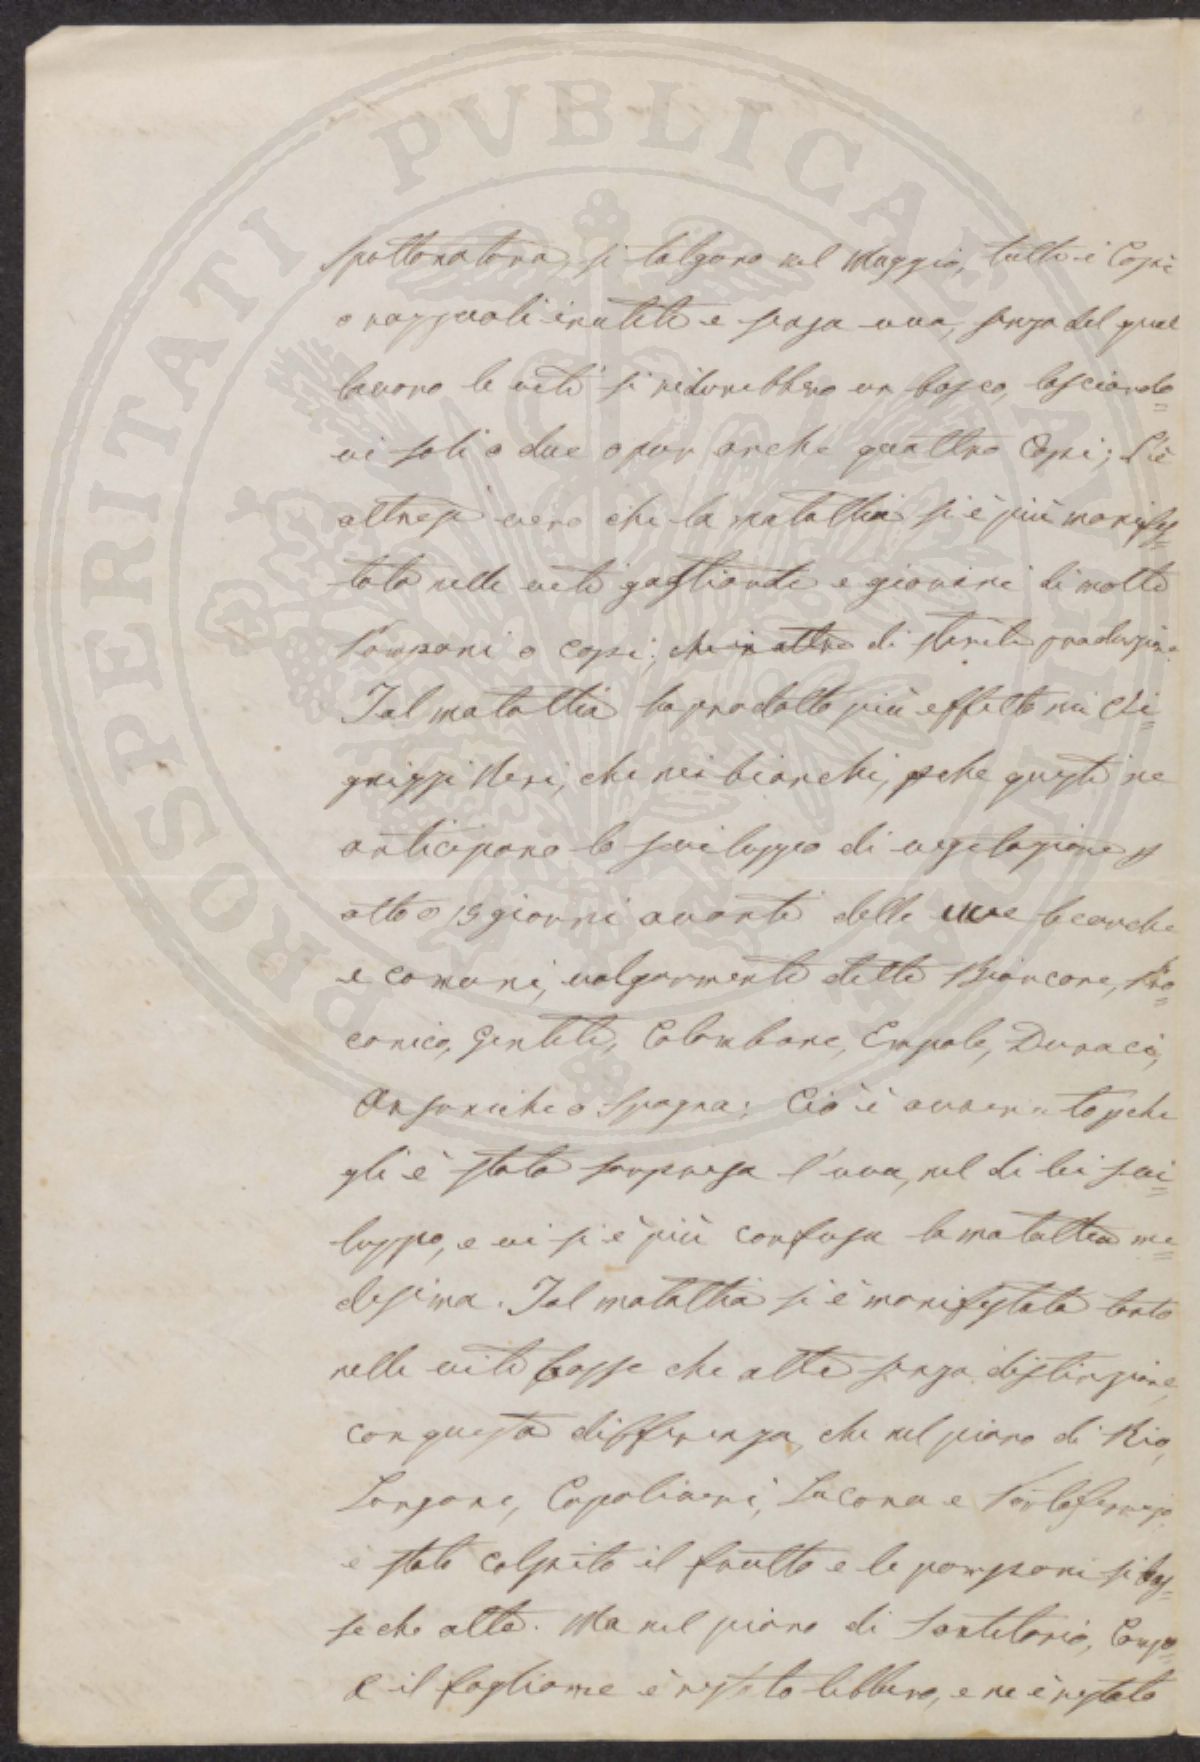 PROSPERITATI PVBLICAE AVGENDAE
spottonatora, si tolgono nel Maggio, tutti i Capi
o razzuoli inutili e senza uva, senza del qual
lavoro le viti si ridurebbero un bosco, lasciando=
vi soli o due o pur anche quattro Capi; S'è
altresì vero che la malattia si è più manifes=
tata nelle viti gagliarde e giovani di molti
Pompani o capi; che in altre di sterile produzione.
Tal malattia ha prodotto più effetto nei Vi=
gnizzi Neri, che nei bianchi, pche questi ne
anticipano lo sviluppo di vegetazione
otto o 15 giorni avanti delle uve bianche
e comuni, volgarmente dette Biancone, Pro=
canico, Gentili, Colombane, Empole, Duraci,
Ansoniche o Spagna: Ciò è avvenuto pche
gli è stata sorpresa l'uva, nel di lei svi=
luppo, e vi si è più confusa la malattia me=
desima. Tal malattia si è manifestata tanto
nelle viti basse che alte senza distinzione,
con questa differenza, che nel piano di Rio,
Longone, Capoliveri, Lacona e Portoferrajo
è stato colpito il frutto e le pompani si bas=
se che alte. Ma nel piano di Santilario, Campo=
e il fogliame è restato libbero, e ne è restato